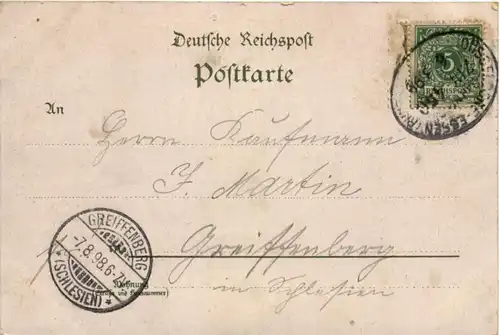 Deutsche Reichspost
Postkarte
5
An
Herrn Kaufmann
J. Martin
Greiffenberg
in Schlesien
GREIFFENBERG
-7.8.98.6-7N
*(SCHLESIEN)*
Wohnung